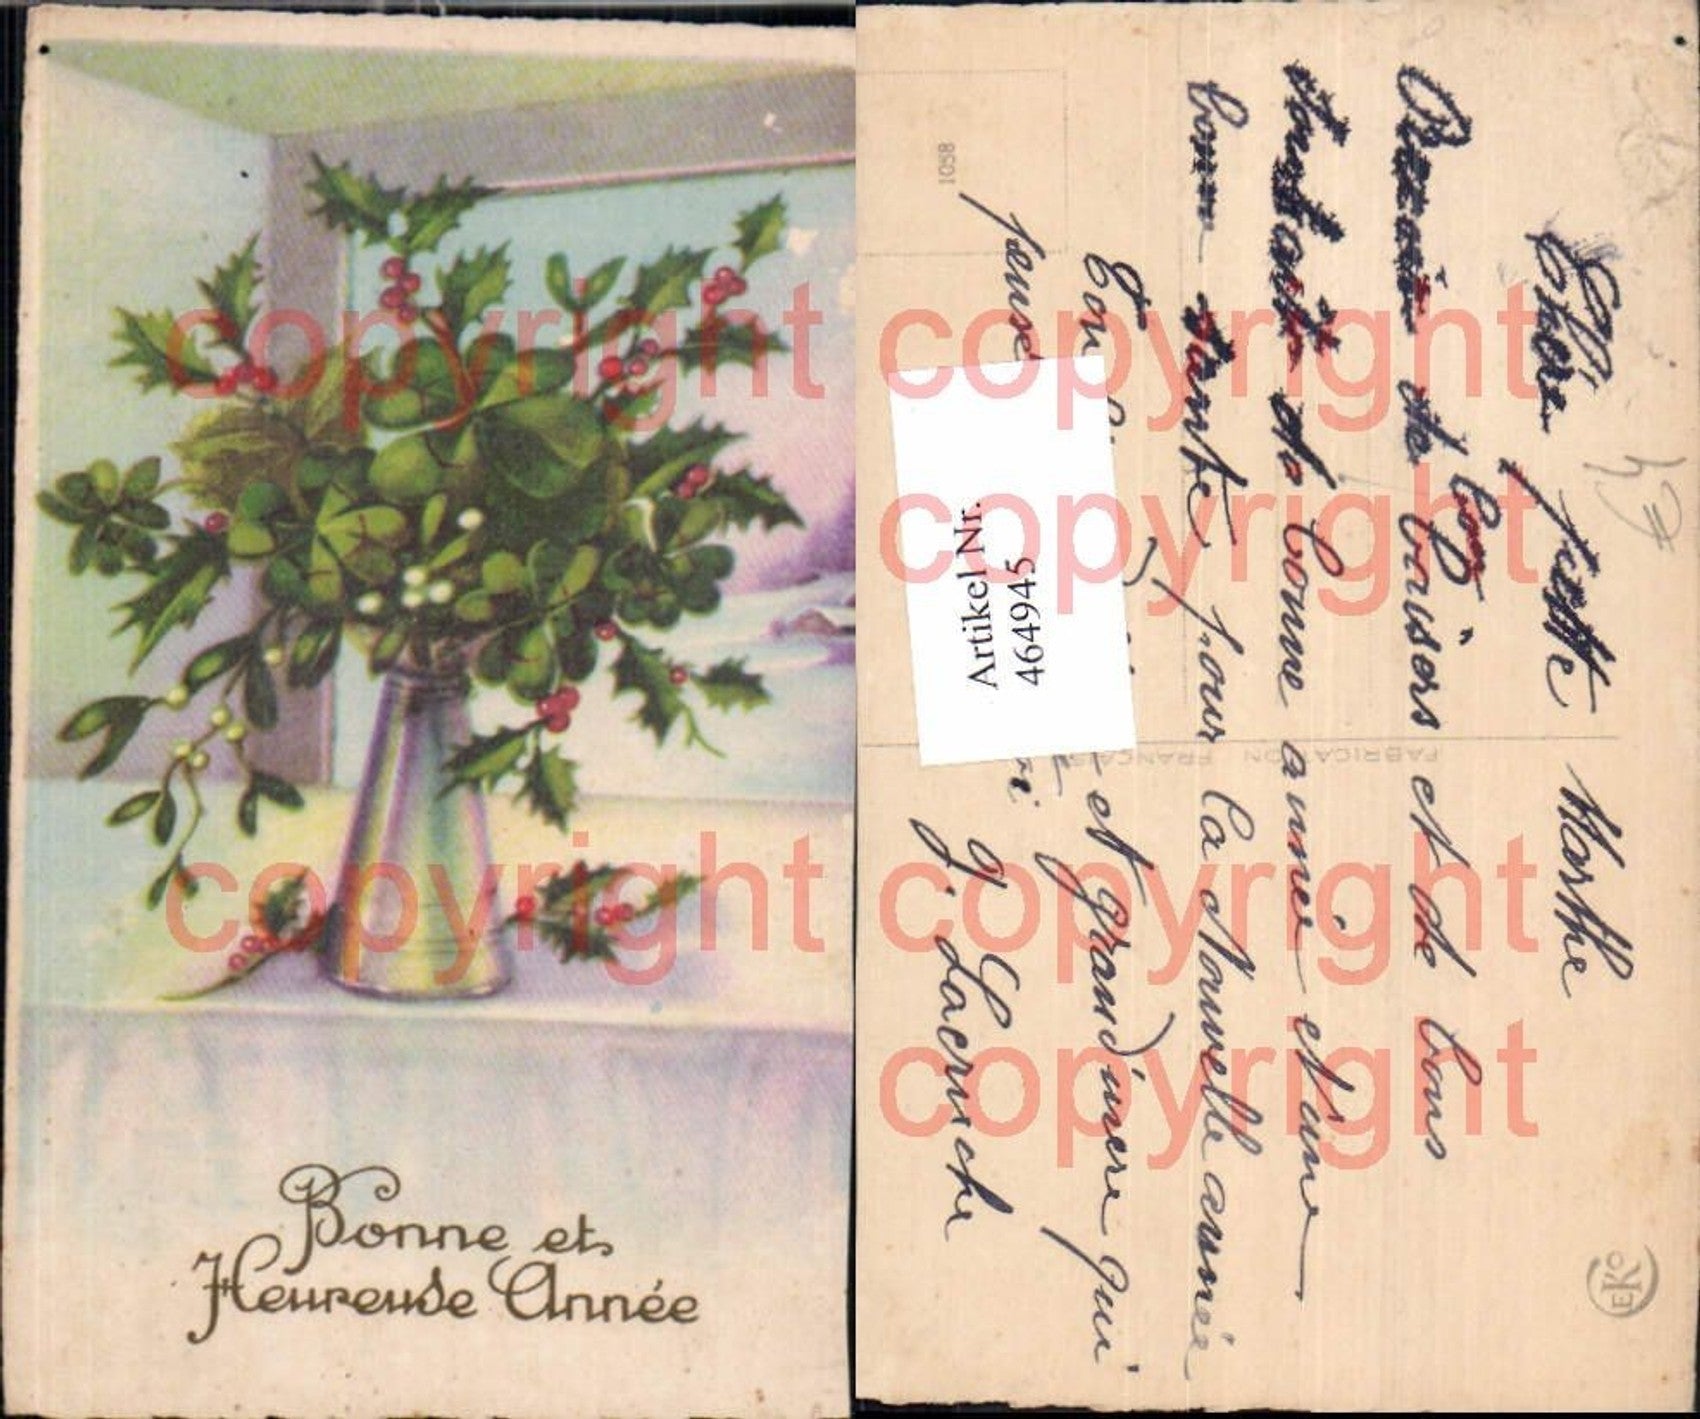 Bonne et
Heureuse Année
Chère petite Marthe
de bons baisers et de bons
souhaits de bonne année et d'une
bonne santé, pour la Nouvelle année
Ton et grand'mère qui
pense
J. Lacruche
1058
FABRICATION FRANÇAISE
EKO
Artikel Nr.
464945
copyright
copyright
copyright
copyright
copyright
copyright